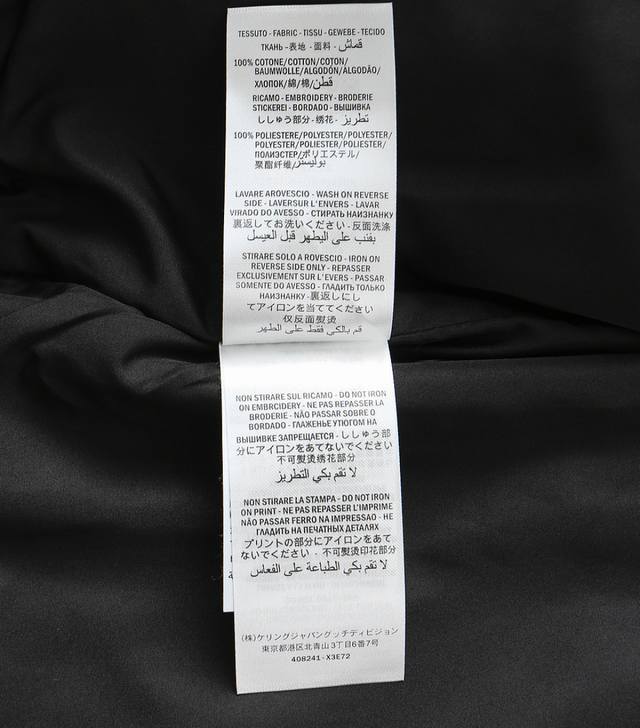 TESSUTO - FABRIC - TISSU - GEWEBE - TECIDO
ТКАНЬ - 表地 - 面料 - قماش
100% COTONE/COTTON/COTON/
BAUMWOLLE/ALGODÓN/ALGODÃO/
ХЛОПОК/綿/棉/قطن
RICAMO - EMBROIDERY - BRODERIE
STICKEREI - BORDADO - ВЫШИВКА
ししゅう部分 - 绣花 - تطريز
100% POLIESTERE/POLYESTER/POLYESTER/
POLYESTER/POLIÉSTER/POLIÉSTER/
ПОЛИЭСТЕР/ポリエステル/
聚酯纤维/بوليستر
LAVARE AROVESCIO - WASH ON REVERSE
SIDE - LAVERSUR L'ENVERS - LAVAR
VIRADO DO AVESSO - СТИРАТЬ НАИЗНАНКУ
裏返してお洗いください - 反面洗涤
بقنب على البطهر قبل العيسل
STIRARE SOLO A ROVESCIO - IRON ON
REVERSE SIDE ONLY - REPASSER
EXCLUSIVEMENT SUR L'EVERS - PASSAR
SOMENTE DO AVESSO - ГЛАДИТЬ ТОЛЬКО
НАИЗНАНКУ - 裏返しにし
てアイロンを当ててください
仅反面熨烫
قم بالكي فقط على الطهر
NON STIRARE SUL RICAMO - DO NOT IRON
ON EMBRCIDERY - NE PAS REPASSER LA
BRODERIE - NÃO PASSAR SOBRE O
BORDADO - ГЛАЖЕНЬЕ УТЮГОМ НА
ВЫШИВКЕ ЗАПРЕЩАЕТСЯ - ししゅう部
分にアイロンをあてないでください
不可熨烫绣花部分
لا تقم بكي التطريز
NON STIRARE LA STAMPA - DO NOT IRON
ON PRINT - NE PAS REPASSER L'IMPRIME
NÃO PASSAR FERRO NA IMPRESSAO - НЕ
ГЛАДИТЬ НА ПЕЧАТНЫХ ДЕТАЛЯХ
プリントの部分にアイロンをあて
ないでください - 不可熨烫印花部分
لا تقم بكي الطباعة على القعاس
(株)ケリングジャパングッチディビジョン
東京都港区北青山3丁目6番7号
408241 - X3E72